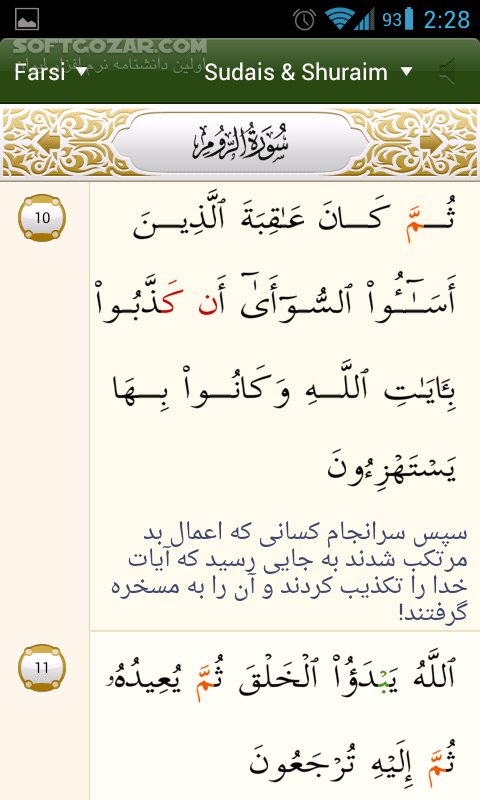 93 2:28
SOFTGOZAR.COM
اولین دانشنامه نرم افزار ایران
Farsi Sudais & Shuraim
سُورَةُ الرُّومِ
10
ثُمَّ كَانَ عَـٰقِبَةَ ٱلَّذِينَ
أَسَـٰٓـُٔوا۟ ٱلسُّوٓأَىٰٓ أَن كَذَّبُوا۟
بِـَٔايَـٰتِ ٱللَّهِ وَكَانُوا۟ بِهَا
يَسْتَهْزِءُونَ
سپس سرانجام کسانی که اعمال بد
مرتکب شدند به جایی رسید که آیات
خدا را تکذیب کردند و آن را به مسخره
گرفتند!
11
ٱللَّهُ يَبْدَؤُا۟ ٱلْخَلْقَ ثُمَّ يُعِيدُهُۥ
ثُمَّ إِلَيْهِ تُرْجَعُونَ